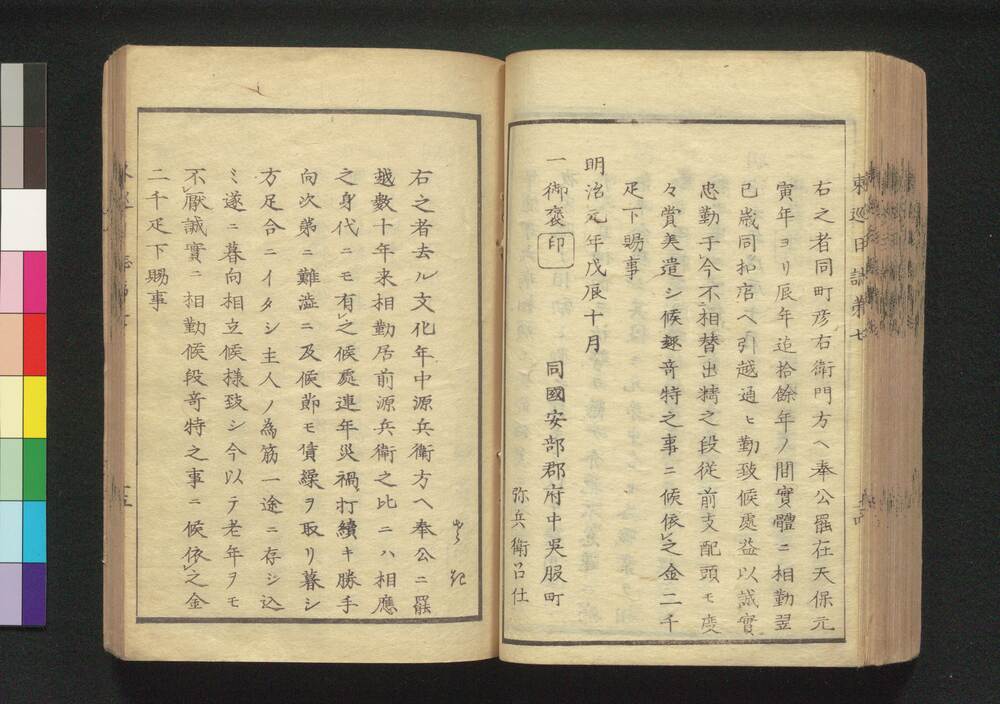 東巡日誌第七
右之者同町彦右衛門方ヘ奉公罷在天保元
寅年ヨリ辰年迄拾餘年ノ間實體ニ相勤翌
巳歳同扣店ヘ引越通ヒ勤致候處益以誠實
忠勤于今不相替出精之段從前支配頭モ度
々賞美遣シ候趣竒特之事ニ候依之金二千
疋下賜事
明治元年戊辰十月
一御褒印 同國安部郡府中吳服町
弥兵衛召仕
右之者去ル文化年中源兵衛方ヘ奉公ニ罷
越數十年来相勤居前源兵衛之比ニハ相應
之身代ニモ有之候處連年災禍打續キ勝手
向次第ニ難澁ニ及候節モ債繰ヲ取リ暮シ
方足合ニイタシ主人ノ為筋一途ニ存シ込
ミ遂ニ暮向相立候様致シ今以テ老年ヲモ
不厭誠實ニ相勤候段竒特之事ニ候依之金
二千疋下賜事